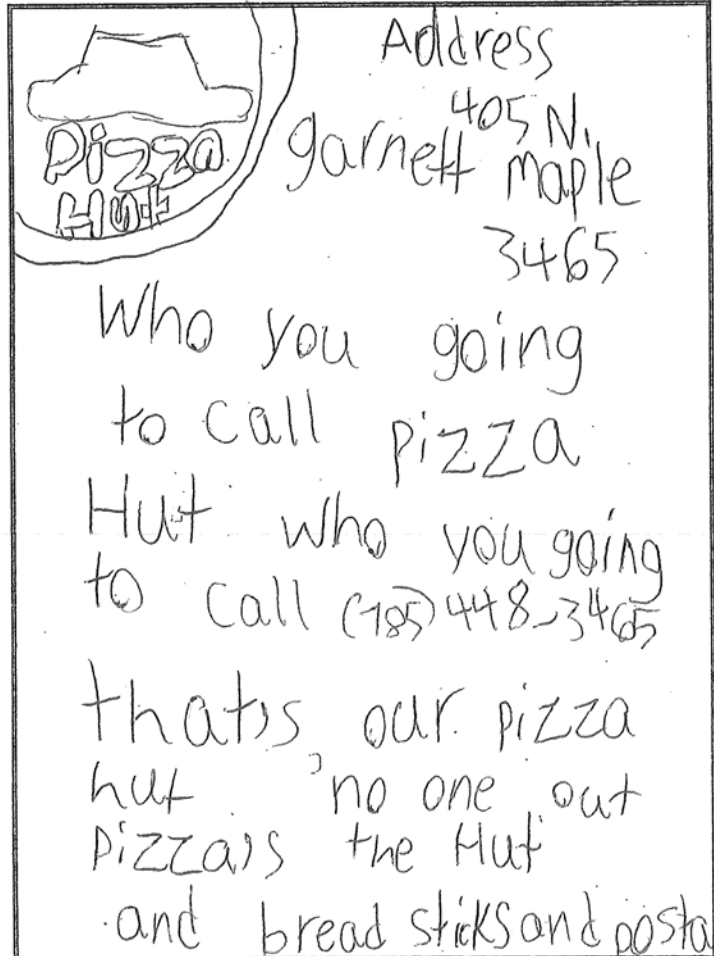 Pizza
Hut
Address
405 N.
garnett maple
3465
Who you going
to call pizza
Hut who you going
to call (785) 448-3465
that's our pizza
hut "no one out
pizza's the Hut
and bread sticks and pasta